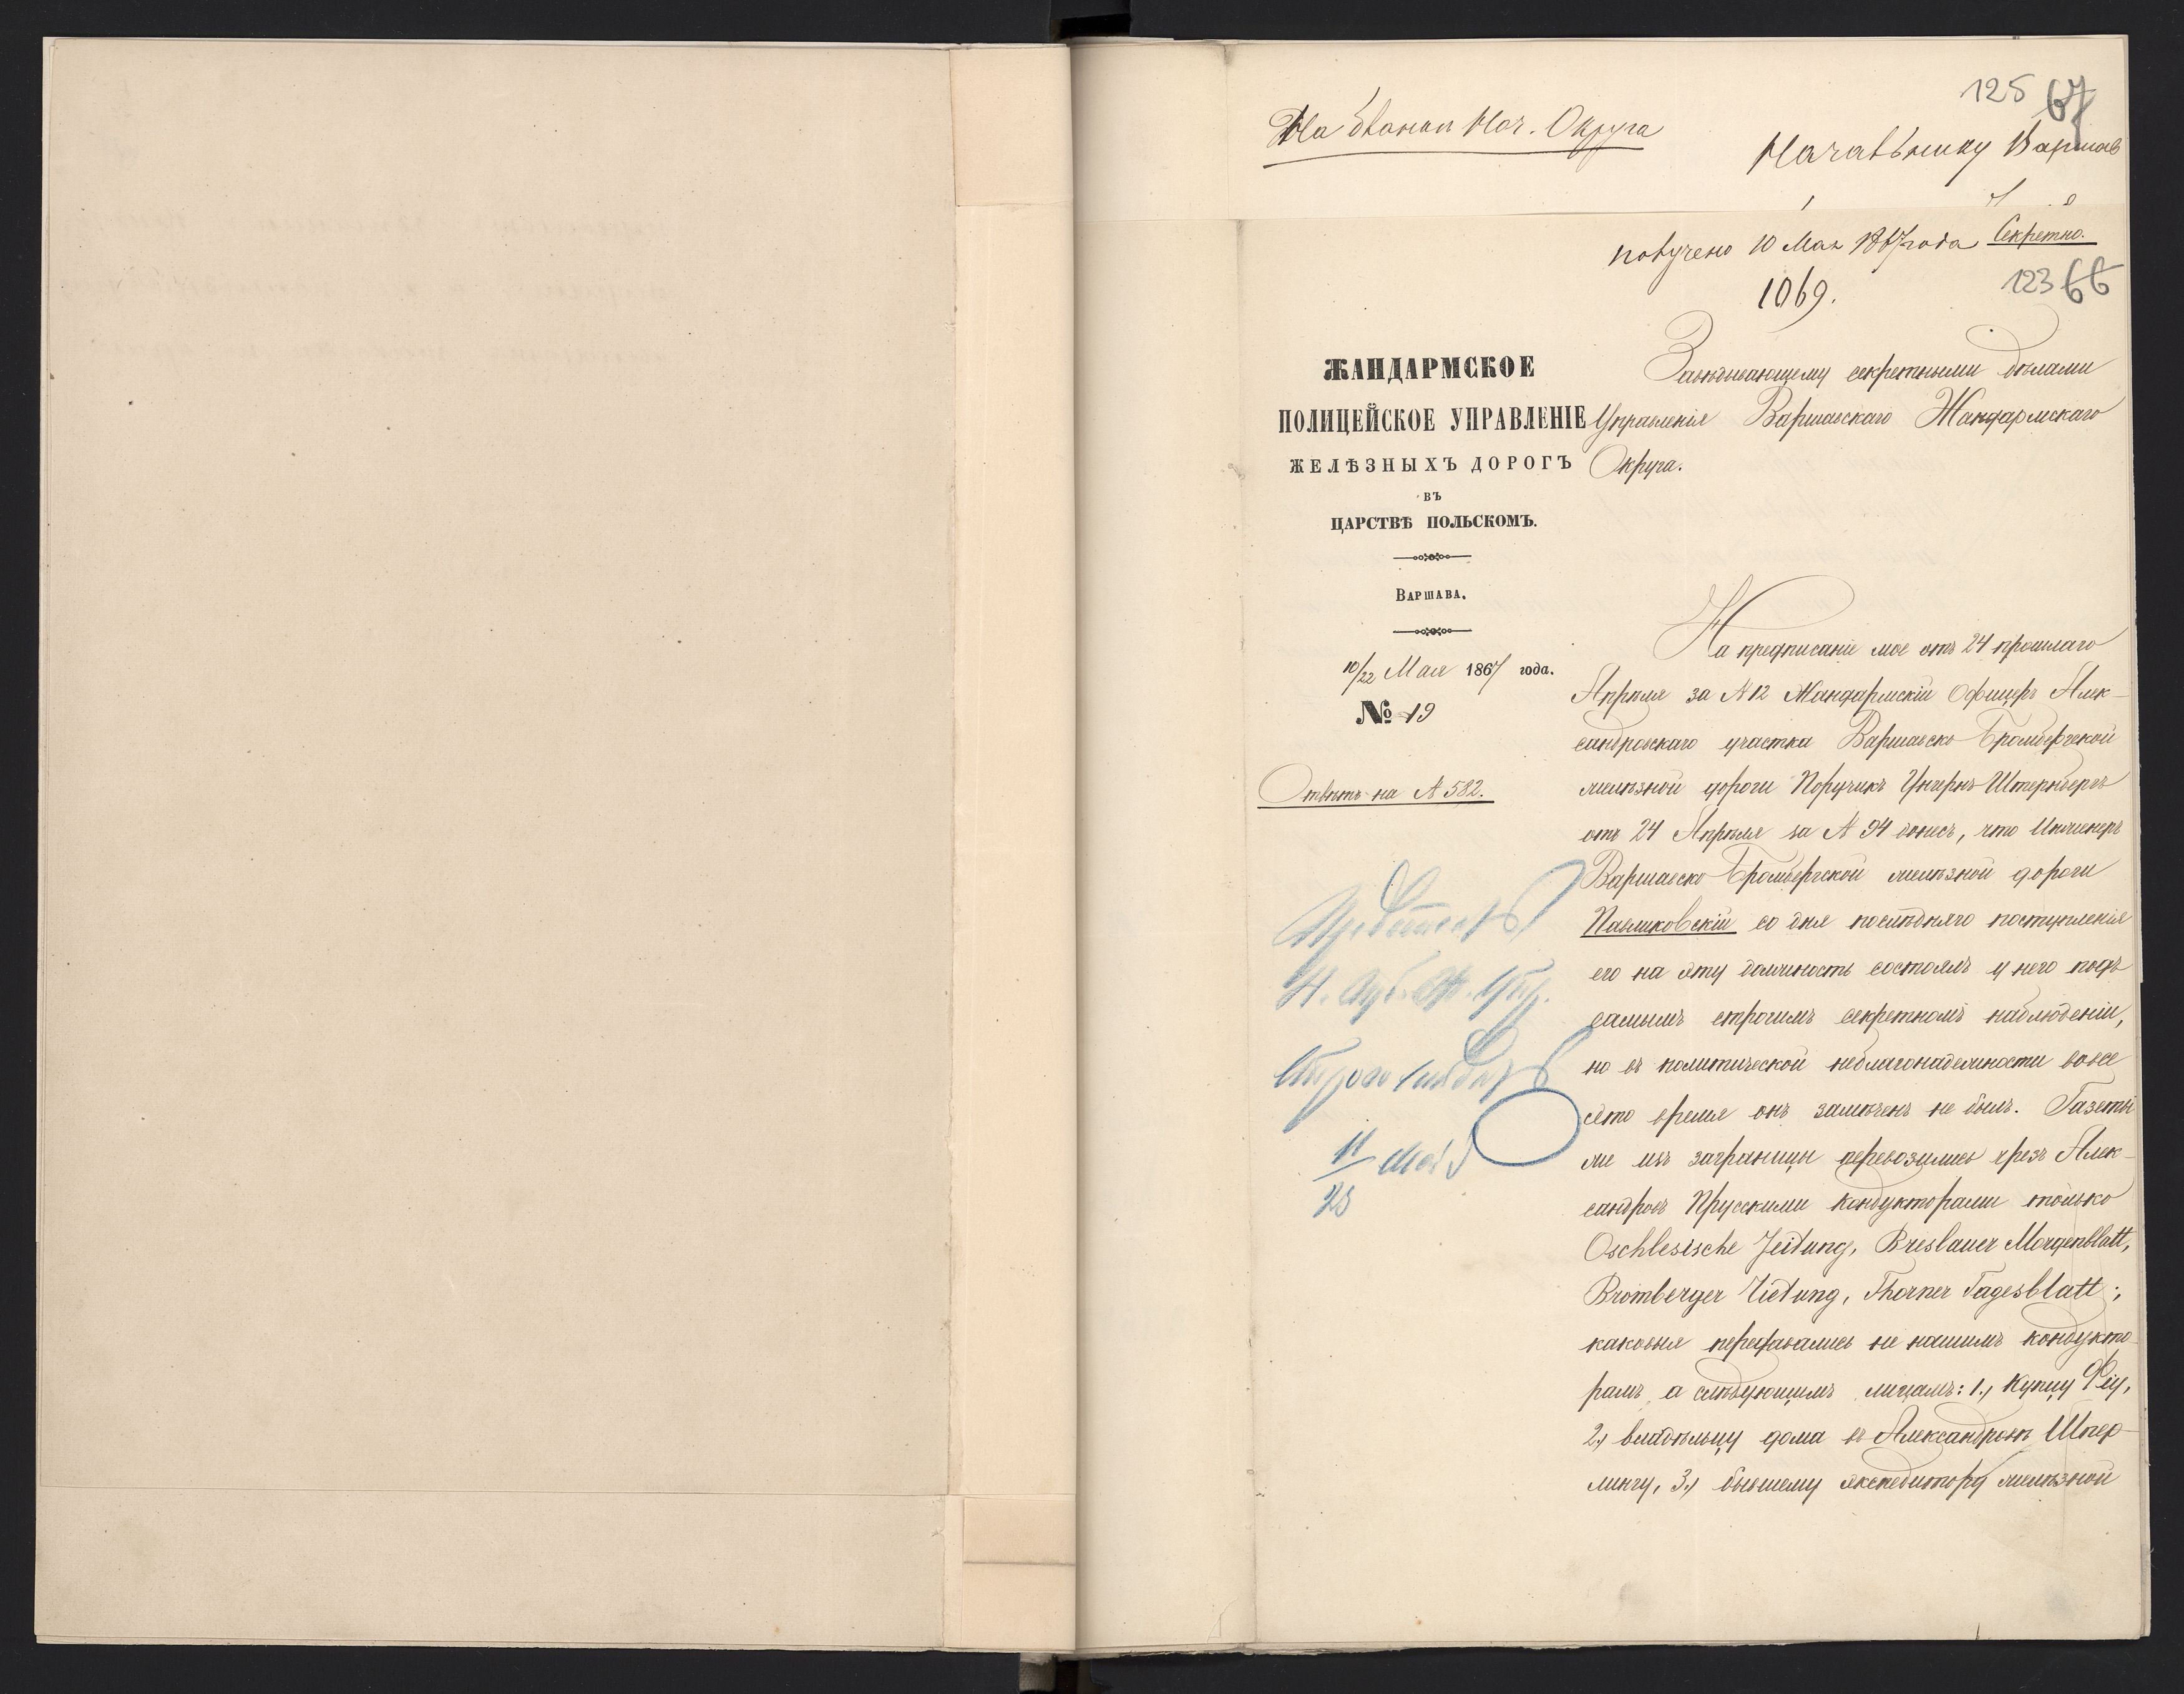 125 67
На бланкѣ Нач. Округа
Начальнику Варшав
получено 10 Мая 1867 года Секретно.
1069.
123 66
ЖАНДАРМСКОЕ
ПОЛИЦЕЙСКОЕ УПРАВЛЕНІЕ
ЖЕЛѢЗНЫХЪ ДОРОГЪ
ВЪ
ЦАРСТВѢ ПОЛЬСКОМЪ.
ВАРШАВА.
10/22 Мая 1867 года.
№ 19
Отвѣтъ на № 582.
11/23 Мая
Завѣдывающему секретными дѣлами
Управленія Варшавскаго Жандармскаго
Округа.
На предписаніе мое отъ 24 прошлаго
Апрѣля за №12 Жандармскій Офицеръ Алек-
сандровскаго участка Варшавско-Бромбергской
желѣзной дороги Поручикъ Унгернъ-Штернбергъ
отъ 24 Апрѣля за № 94 донесъ, что Инженеръ
Варшавско-Бромбергской желѣзной дороги
Павликовскій со дня послѣдняго поступленія
его на эту должность состоялъ у него подъ
самымъ строгимъ секретномъ наблюденіи,
но въ политической неблагонадежности во все
это время онъ замѣченъ не былъ. Газеты
же изъ заграницы перевозились чрезъ Алек-
сандровъ Прусскими кондукторами только
Oschlesische Zeitung, Breslauer Morgenblatt,
Bromberger Zietung, Thorner Tagesblatt;,
каковыя передавались не нашимъ кондукто-
рамъ, а слѣдующимъ лицамъ: 1.) Купцу
2.) владѣльцу дома въ Александровѣ Шпер-
лингу, 3.) бывшему экспедитору желѣзной